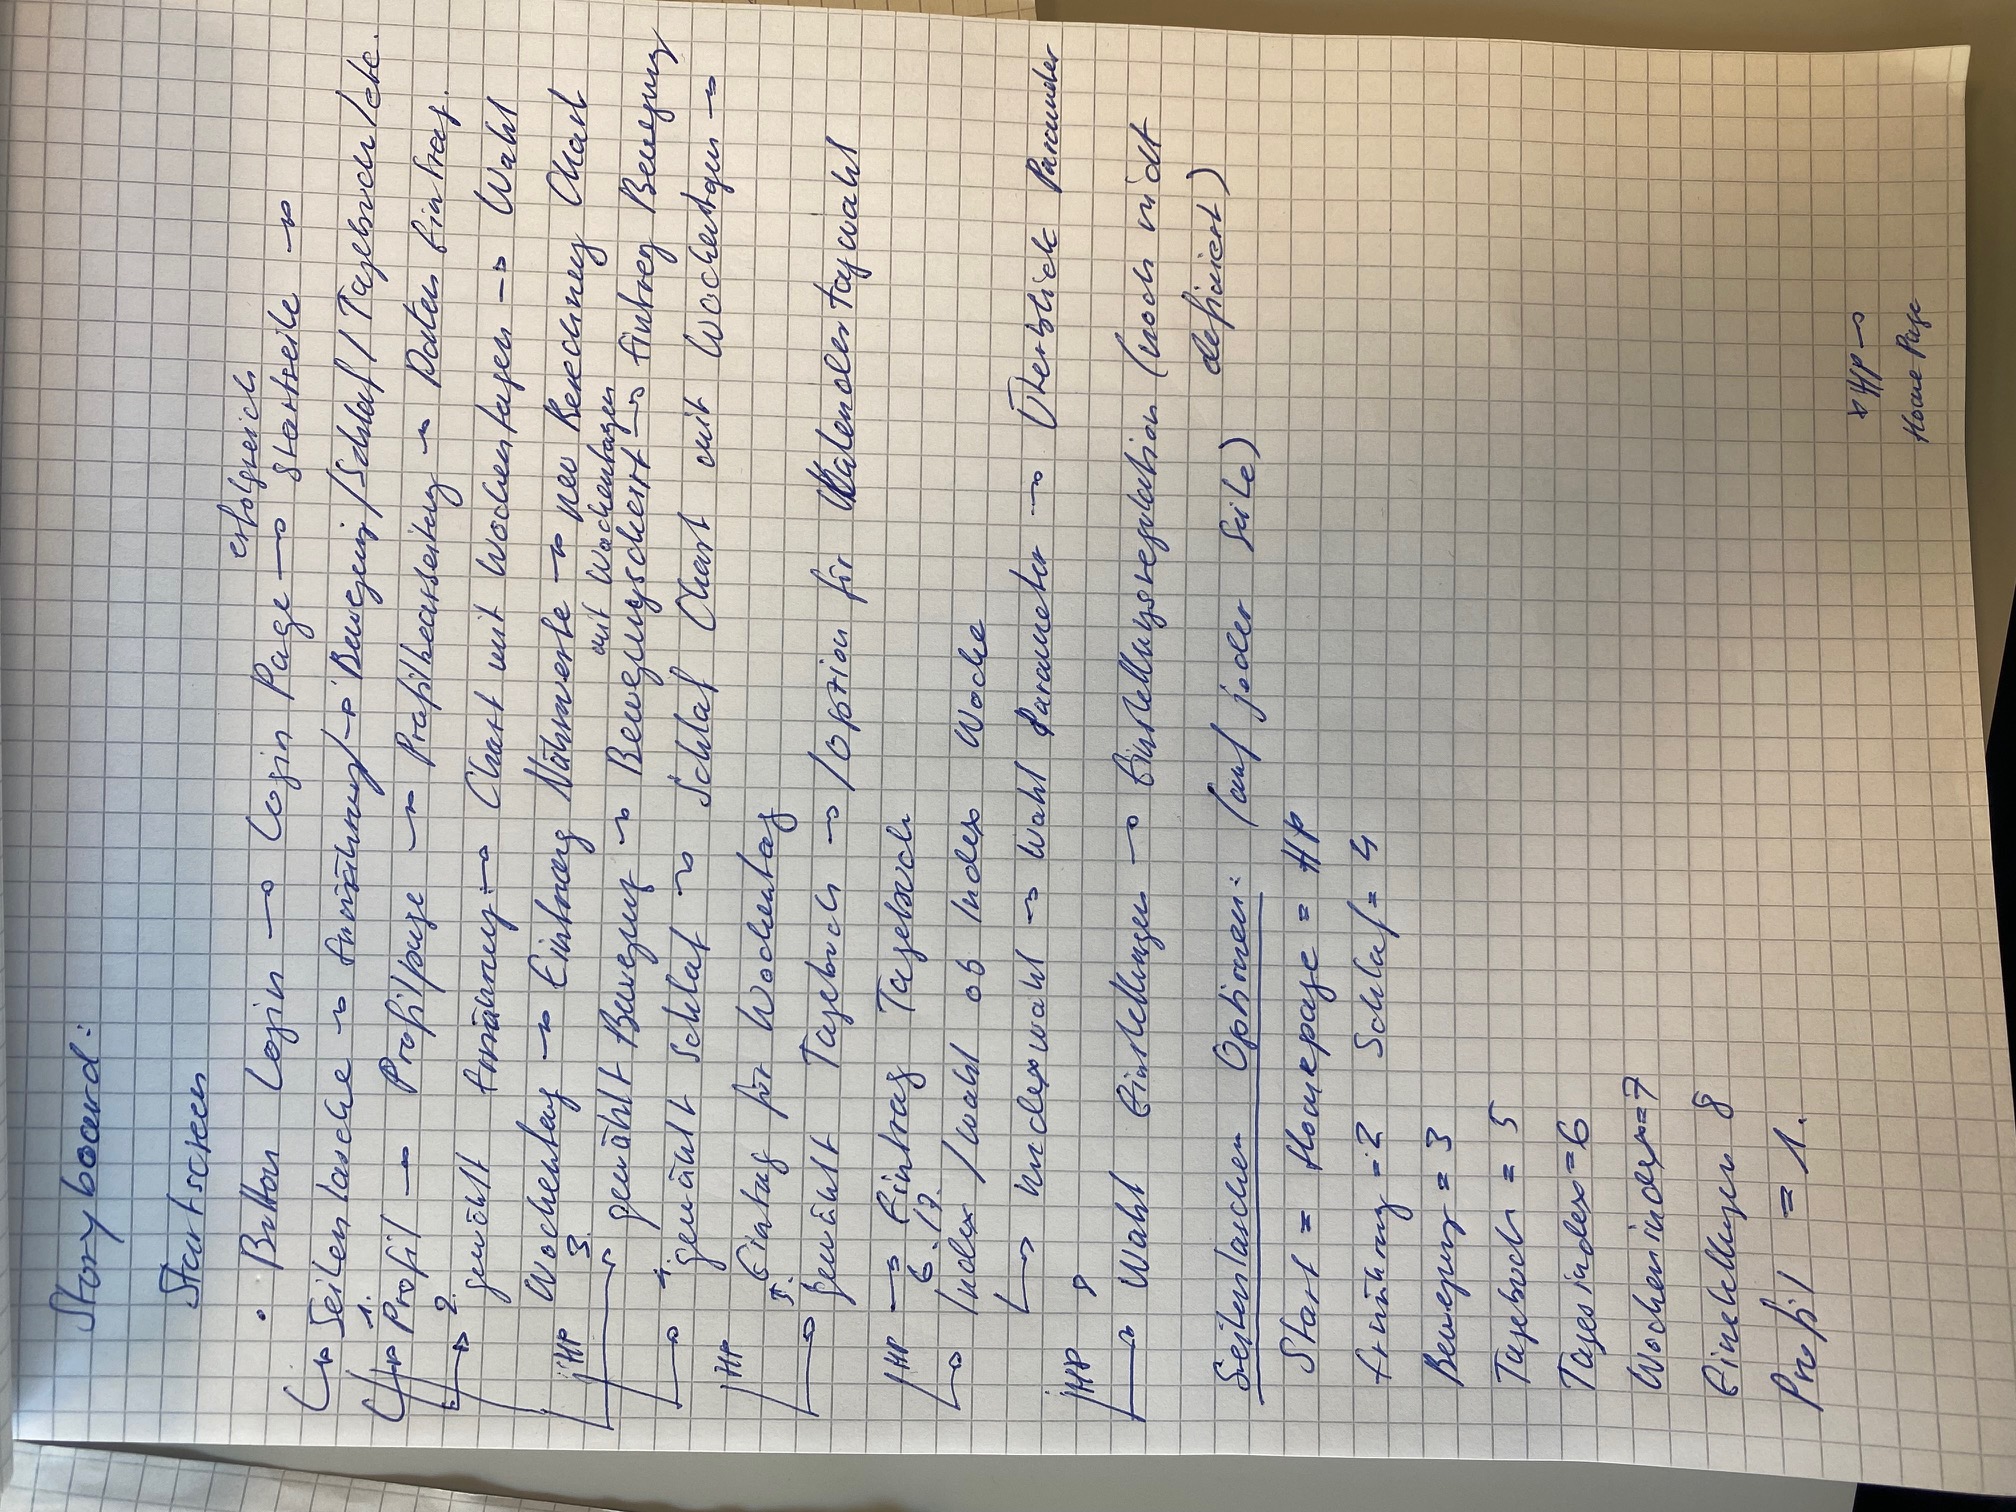 Storyboard:
Startscreen
erfolgreich
• Button Login → Login Page → Startseite →
↳ Seitenlasche → Ernährung/→ Bewegung/Schlaf/Tagebuch/etc.
1.
↳ Profil → Profilpage → Profilbearbeitung → Daten Eintrag.
2.
gewählt Ernährung → Chart mit Wochentagen → Wahl
Wochentag → Eintrag Nährwerte → neu Berechnung Chart
HP 3. mit Wochentagen
gewählt Bewegung → Bewegungschart → Eintrag Bewegung
4.
gewählt Schlaf → Schlaf Chart mit Wochentagen →
HP
Eintrag für Wochentag
5.
gewählt Tagebuch → /Option für Kalendertagwahl
HP → Eintrag Tagebuch
6./7.
Index /Wahl ob Index Woche
↳ Indexwahl → Wahl Parameter → Überblick Parameter
HP 8
Wahl Einstellungen → Einstellungsregulation (noch nicht
definiert)
Seitenlaschen Optionen: (auf jeder Seite)
Start = Homepage = HP
Ernährung = 2 Schlaf = 4
Bewegung = 3
Tagebuch = 5
Tagesindex = 6
Wochenindex = 7
Einstellungen 8
Profil = 1.
HP →
Home Page